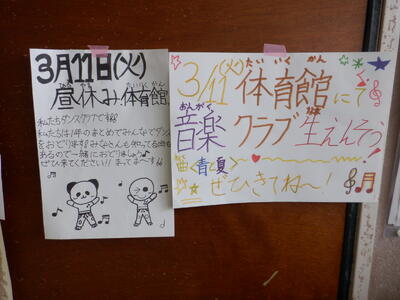 3月11日(火)
ひるやす たいいくかん
昼休み 体育館
私たちダンスクラブです
私たちは1年のまとめでみんなでダンス
をおどります!みなさんも知ってる曲も
あるので一緒におどりましょう♪
ぜひ来てください!!まってま〜す
たいいくかん
3/11(火)体育館にて
おんがく
音楽クラブ生えんそう!
笛<青と夏>
ぜひきてね〜!